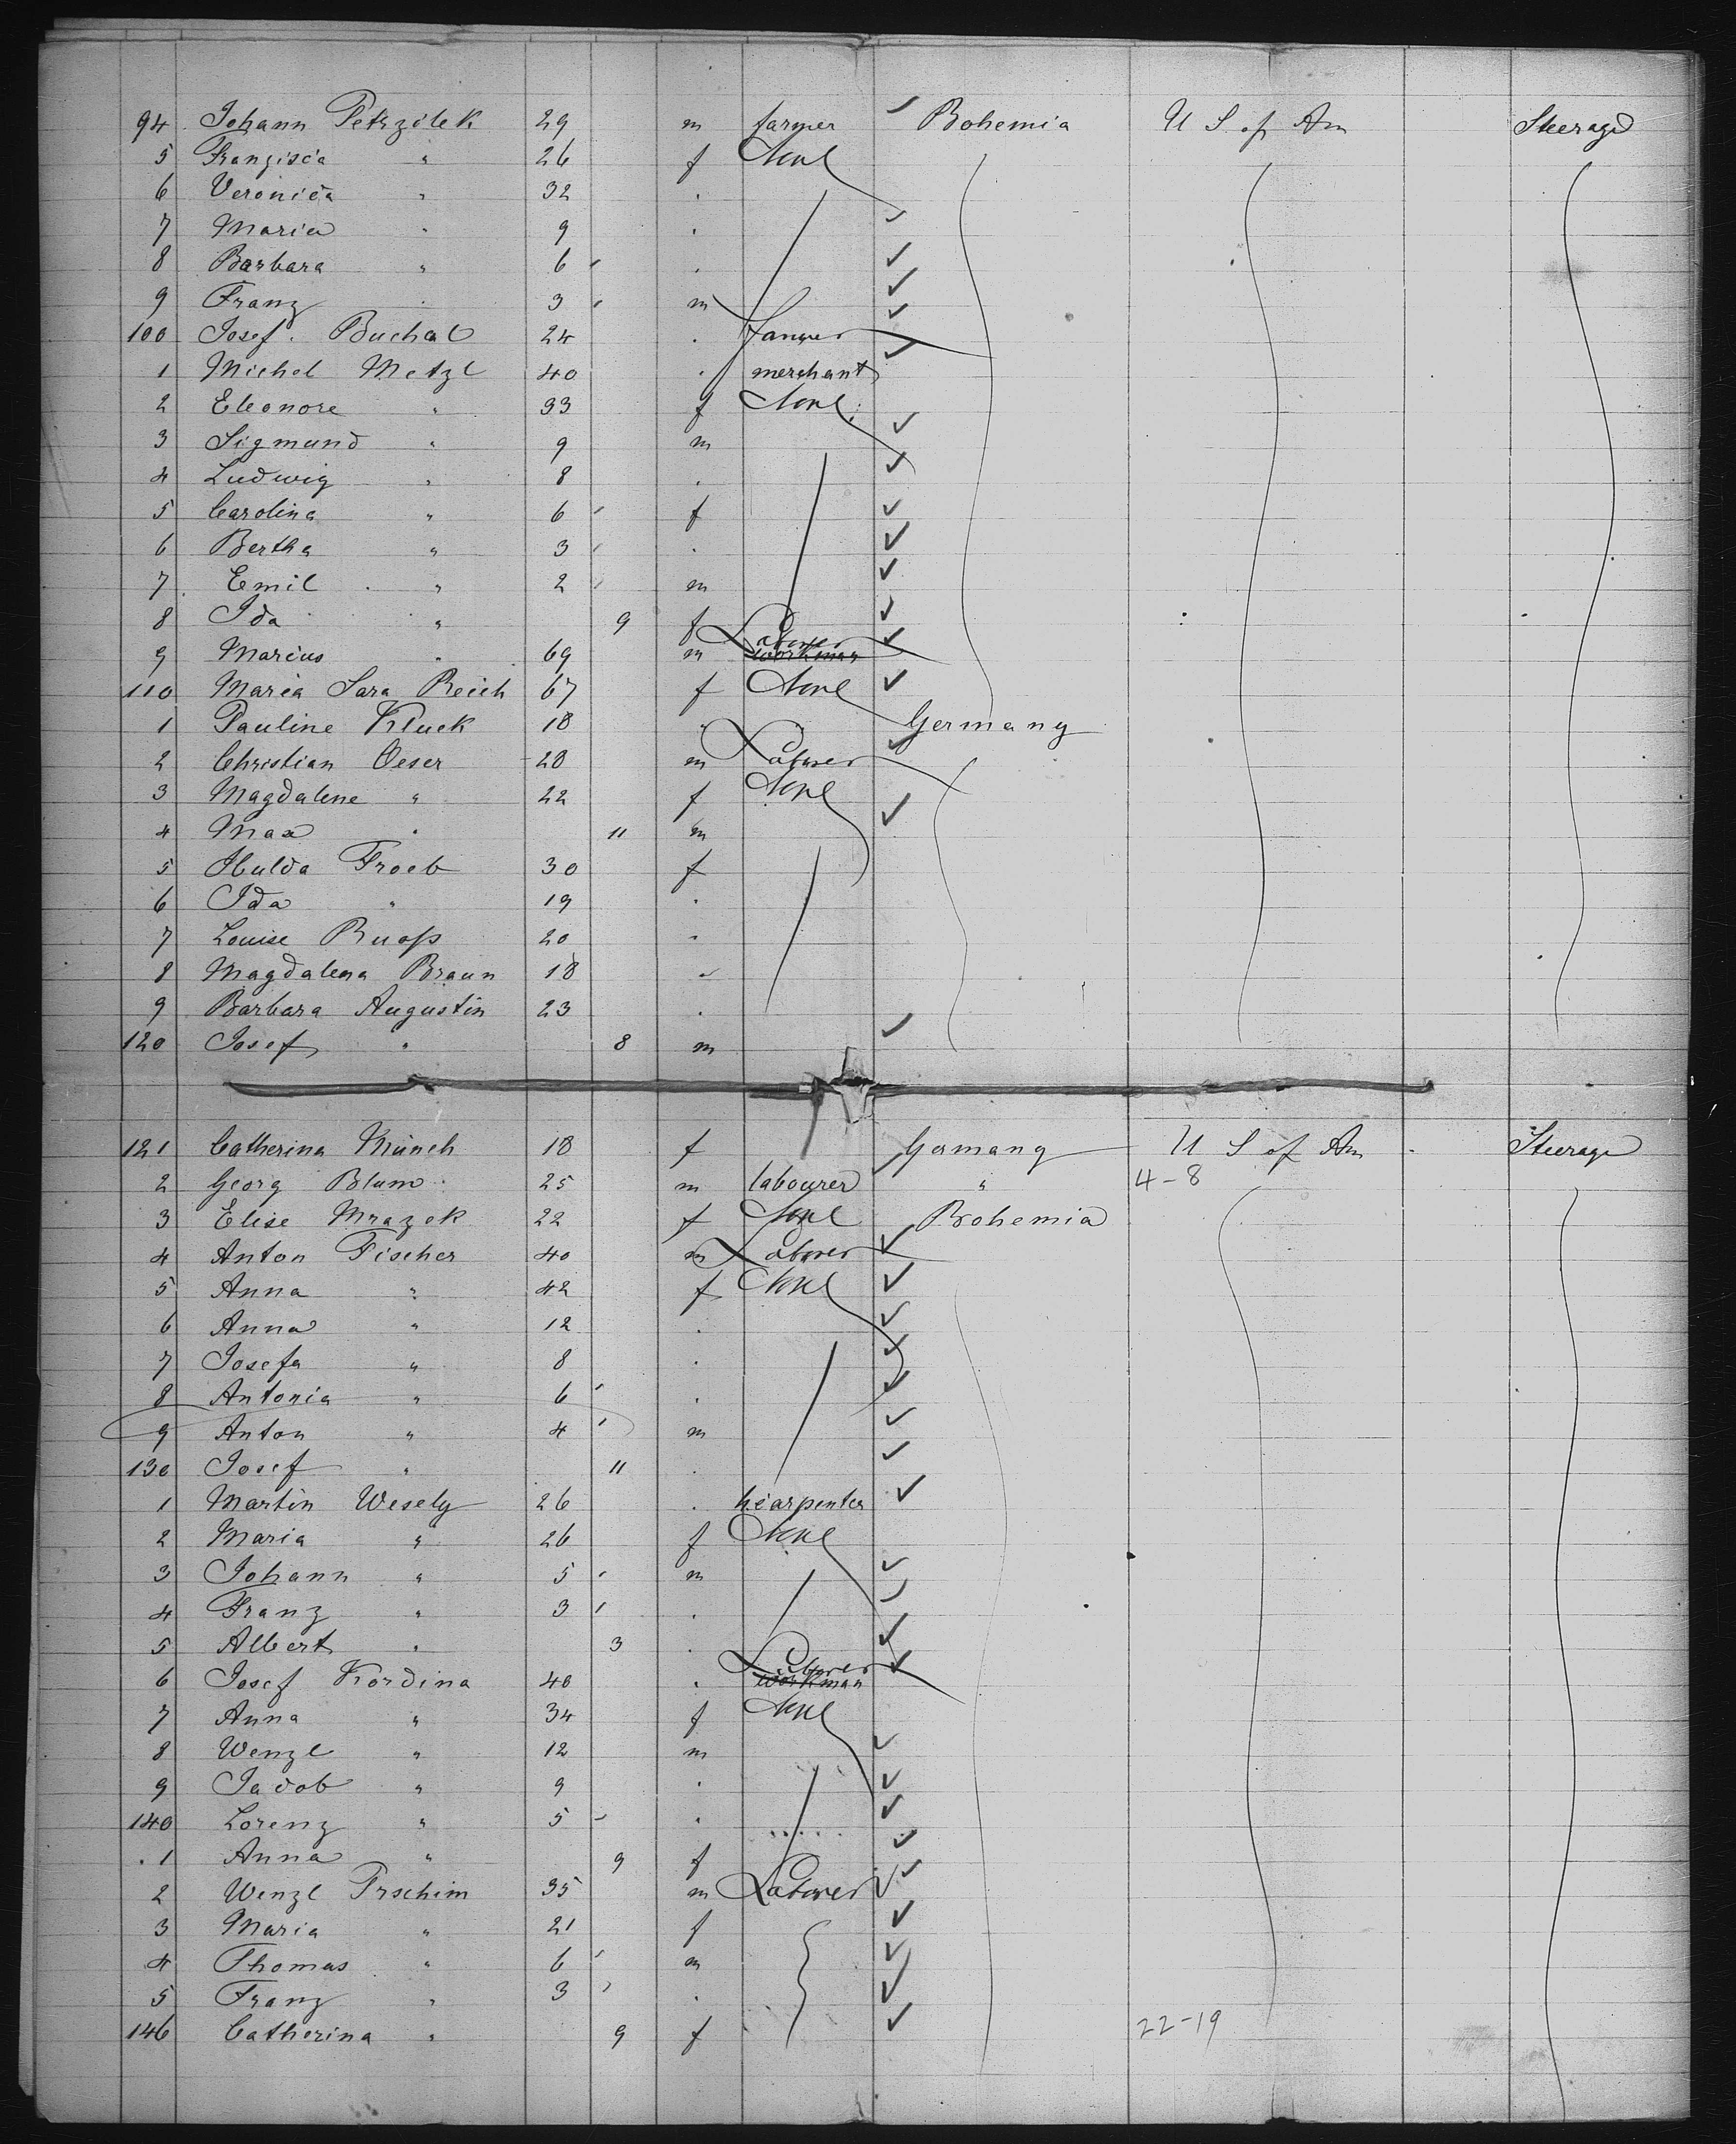 94 Johann Petrzilek 29 m farmer Bohemia U S of Am Steerage
5 Franzisca " 26 f None
6 Veronica " 32 "
7 Maria " 9 "
8 Barbara " 6 "
9 Franz " 3 m
100 Josef Buchal 24 " farmer
1 Michel Metzl 40 " merchant
2 Eleonore " 33 f None
3 Sigmund " 9 m
4 Ludwig " 8 "
5 Carolina " 6 f
6 Bertha " 3 "
7 Emil " 2 m
8 Ida " 9 f
9 Marcus " 69 m Laborer workman
110 Maria Sara Reich 67 f None
1 Pauline Kluck 18 " Germany
2 Christian Oeser 28 m Laborer
3 Magdalene " 22 f None
4 Max " 11 m
5 Hulda Froeb 30 f
6 Ida " 19 "
7 Louise Ruoss 20 "
8 Magdalena Braun 18 "
9 Barbara Augustin 23 "
120 Josef " 8 m
121 Catherina Münch 18 f Germany U S of Am Steerage
2 Georg Blum 25 m labourer " 4-8
3 Elise Mrazek 22 f None Bohemia
4 Anton Fischer 40 m Laborer
5 Anna " 42 f None
6 Anna " 12 "
7 Josefa " 8 "
8 Antonia " 6 "
9 Anton " 4 m
130 Josef " 11 "
1 Martin Wesely 26 " carpenter
2 Maria " 26 f None
3 Johann " 5 m
4 Franz " 3 "
5 Albert " 3 "
6 Josef Kordina 40 " Laborer workman
7 Anna " 34 f None
8 Wenzl " 12 m
9 Jacob " 9 "
140 Lorenz " 5 "
1 Anna " 9 f
2 Wenzl Prschim 35 m Laborer
3 Maria " 21 f
4 Thomas " 6 m
5 Franz " 3 "
146 Catherina " 9 f 22-19